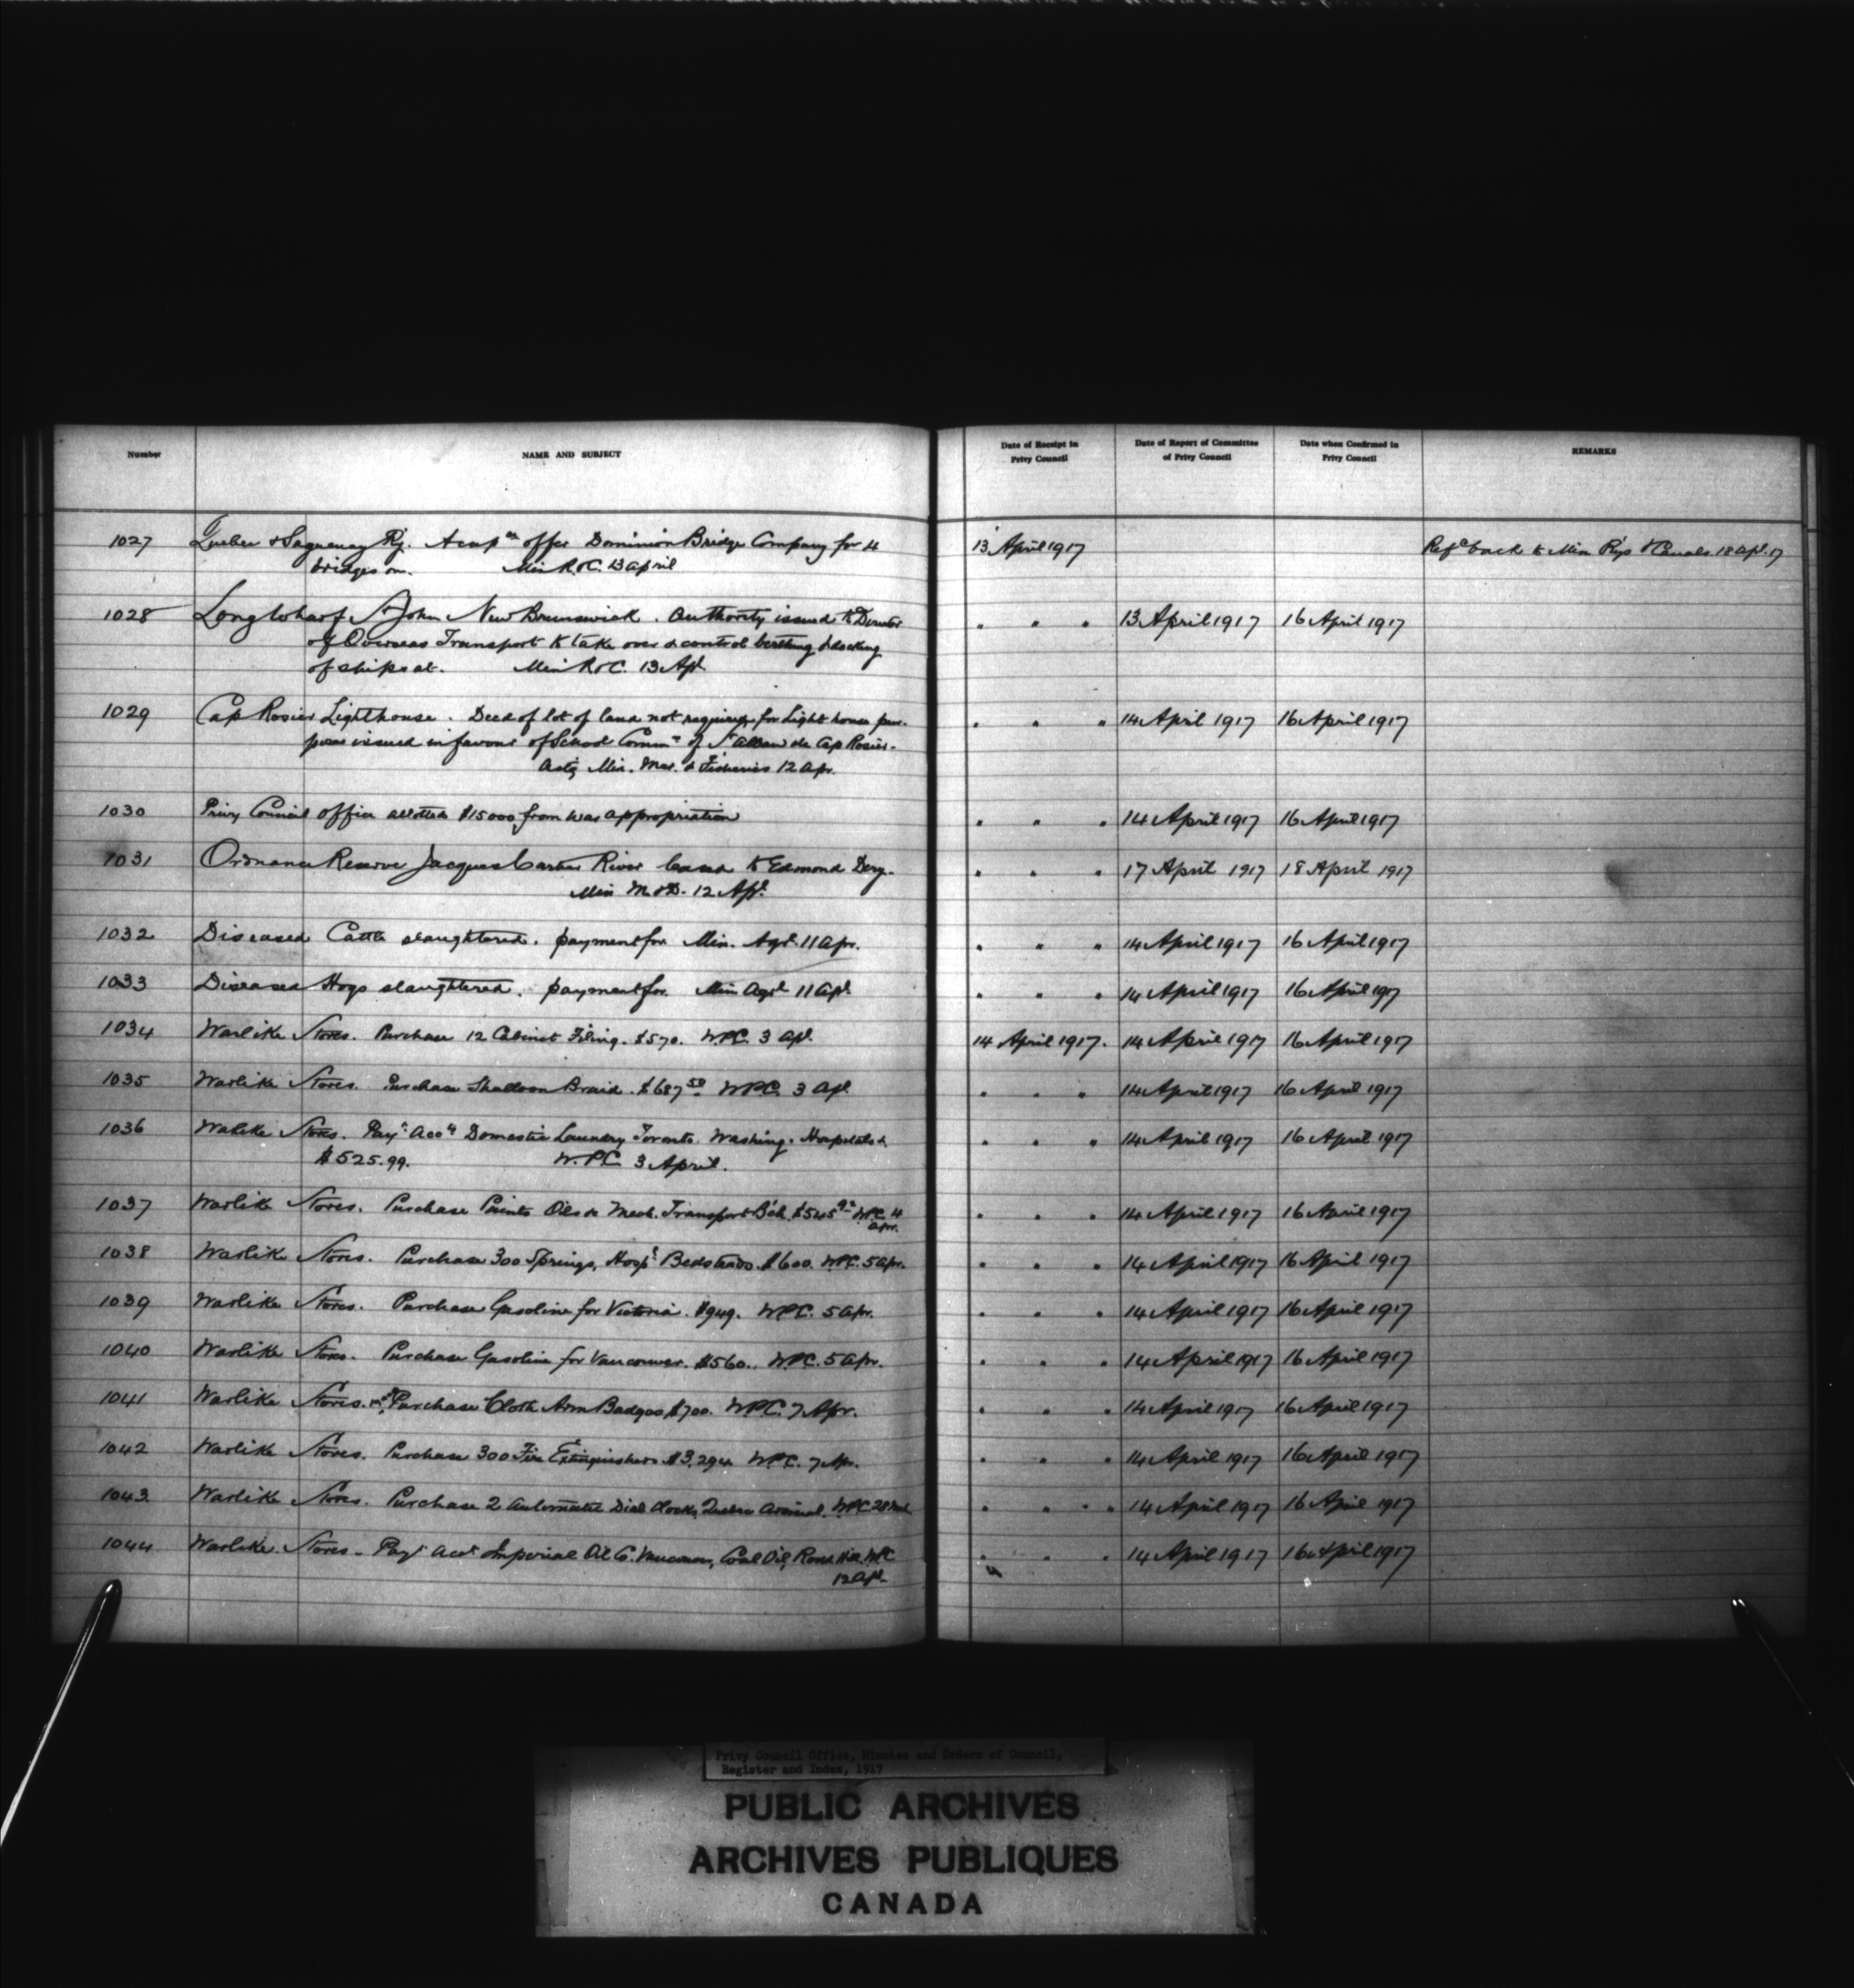 Number NAME AND SUBJECT Date of Receipt in Privy Council Date of Report of Committee of Privy Council Date when Confirmed in Privy Council REMARKS
1027 Quebec & Saguenay Ry. Accepce offer Dominion Bridge Company for 4 13 April 1917 Refd back to Min Rys & Canals 18 Apl. 17
bridges on. Min R&C. 13 April
1028 Long Wharf St John New Brunswick. Authority issued to Director " " " 13 April 1917 16 April 1917
of Overseas Transport to take over & control berthing & docking
of ships at. Min R&C. 13 Apl.
1029 Cap Rosier Lighthouse. Deed of lot of land not required for Light house pur- " " " 14 April 1917 16 April 1917
poses issued in favour of School Commrs of St Alban de Cap Rosier.
Actg Min. Mar. & Fisheries 12 Apr.
1030 Privy Council Office allotted $15000 from War appropriation " " " 14 April 1917 16 April 1917
1031 Ordnance Reserve Jacques Cartier River leased to Edmond Dery. " " " 17 April 1917 18 April 1917
Min M&D. 12 Apl.
1032 Diseased Cattle slaughtered. payment for Min. Agrl. 11 Apr. " " " 14 April 1917 16 April 1917
1033 Diseased Hogs slaughtered. payment for. Min Agrl 11 Apl. " " " 14 April 1917 16 April 1917
1034 Warlike Stores. Purchase 12 Cabinet Filing. $570. W.P.C. 3 Apl. 14 April 1917. 14 April 1917 16 April 1917
1035 Warlike Stores. Purchase Shalloon Braid. $687 50 W.P.C. 3 Apl " " " 14 April 1917 16 April 1917
1036 Warlike Stores. Payt Acct Domestic Laundry Toronto. Washing. Hospitals &. " " " 14 April 1917 16 April 1917
$525.99. W.P.C. 3 April.
1037 Warlike Stores. Purchase Paints Oils &c Mech. Transport Bch. $545 W.P.C. 4 " " " 14 April 1917 16 April 1917
Apr.
1038 Warlike Stores. Purchase 300 Springs, Hospl Bedsteads. $600. W.P.C. 5 Apr. " " " 14 April 1917 16 April 1917
1039 Warlike Stores. Purchase Gasoline for Victoria. $949. W.P.C. 5 Apr. " " " 14 April 1917 16 April 1917
1040 Warlike Stores. Purchase Gasoline for Vancouver. $560. W.P.C. 5 Apr. " " " 14 April 1917 16 April 1917
1041 Warlike Stores. Purchase Cloth Arm Badges $700. W.P.C. 7 Apr. " " " 14 April 1917 16 April 1917
1042 Warlike Stores. Purchase 300 Fire Extinguishers $3,294 W.P.C. 7 Apr. " " " 14 April 1917 16 April 1917
1043 Warlike Stores. Purchase 2 Automatic Dial Clocks, Quebec Arsenal. W.P.C. 28 Mch " " " " 14 April 1917 16 April 1917
1044 Warlike Stores - Payt acct Imperial Oil Co. Vancouver, Coal Oil, W.P.C. " " " 14 April 1917 16 April 1917
12 Apl.
Privy Council Office, Minutes and Orders of Council,
Register and Index, 1917
PUBLIC ARCHIVES
ARCHIVES PUBLIQUES
CANADA